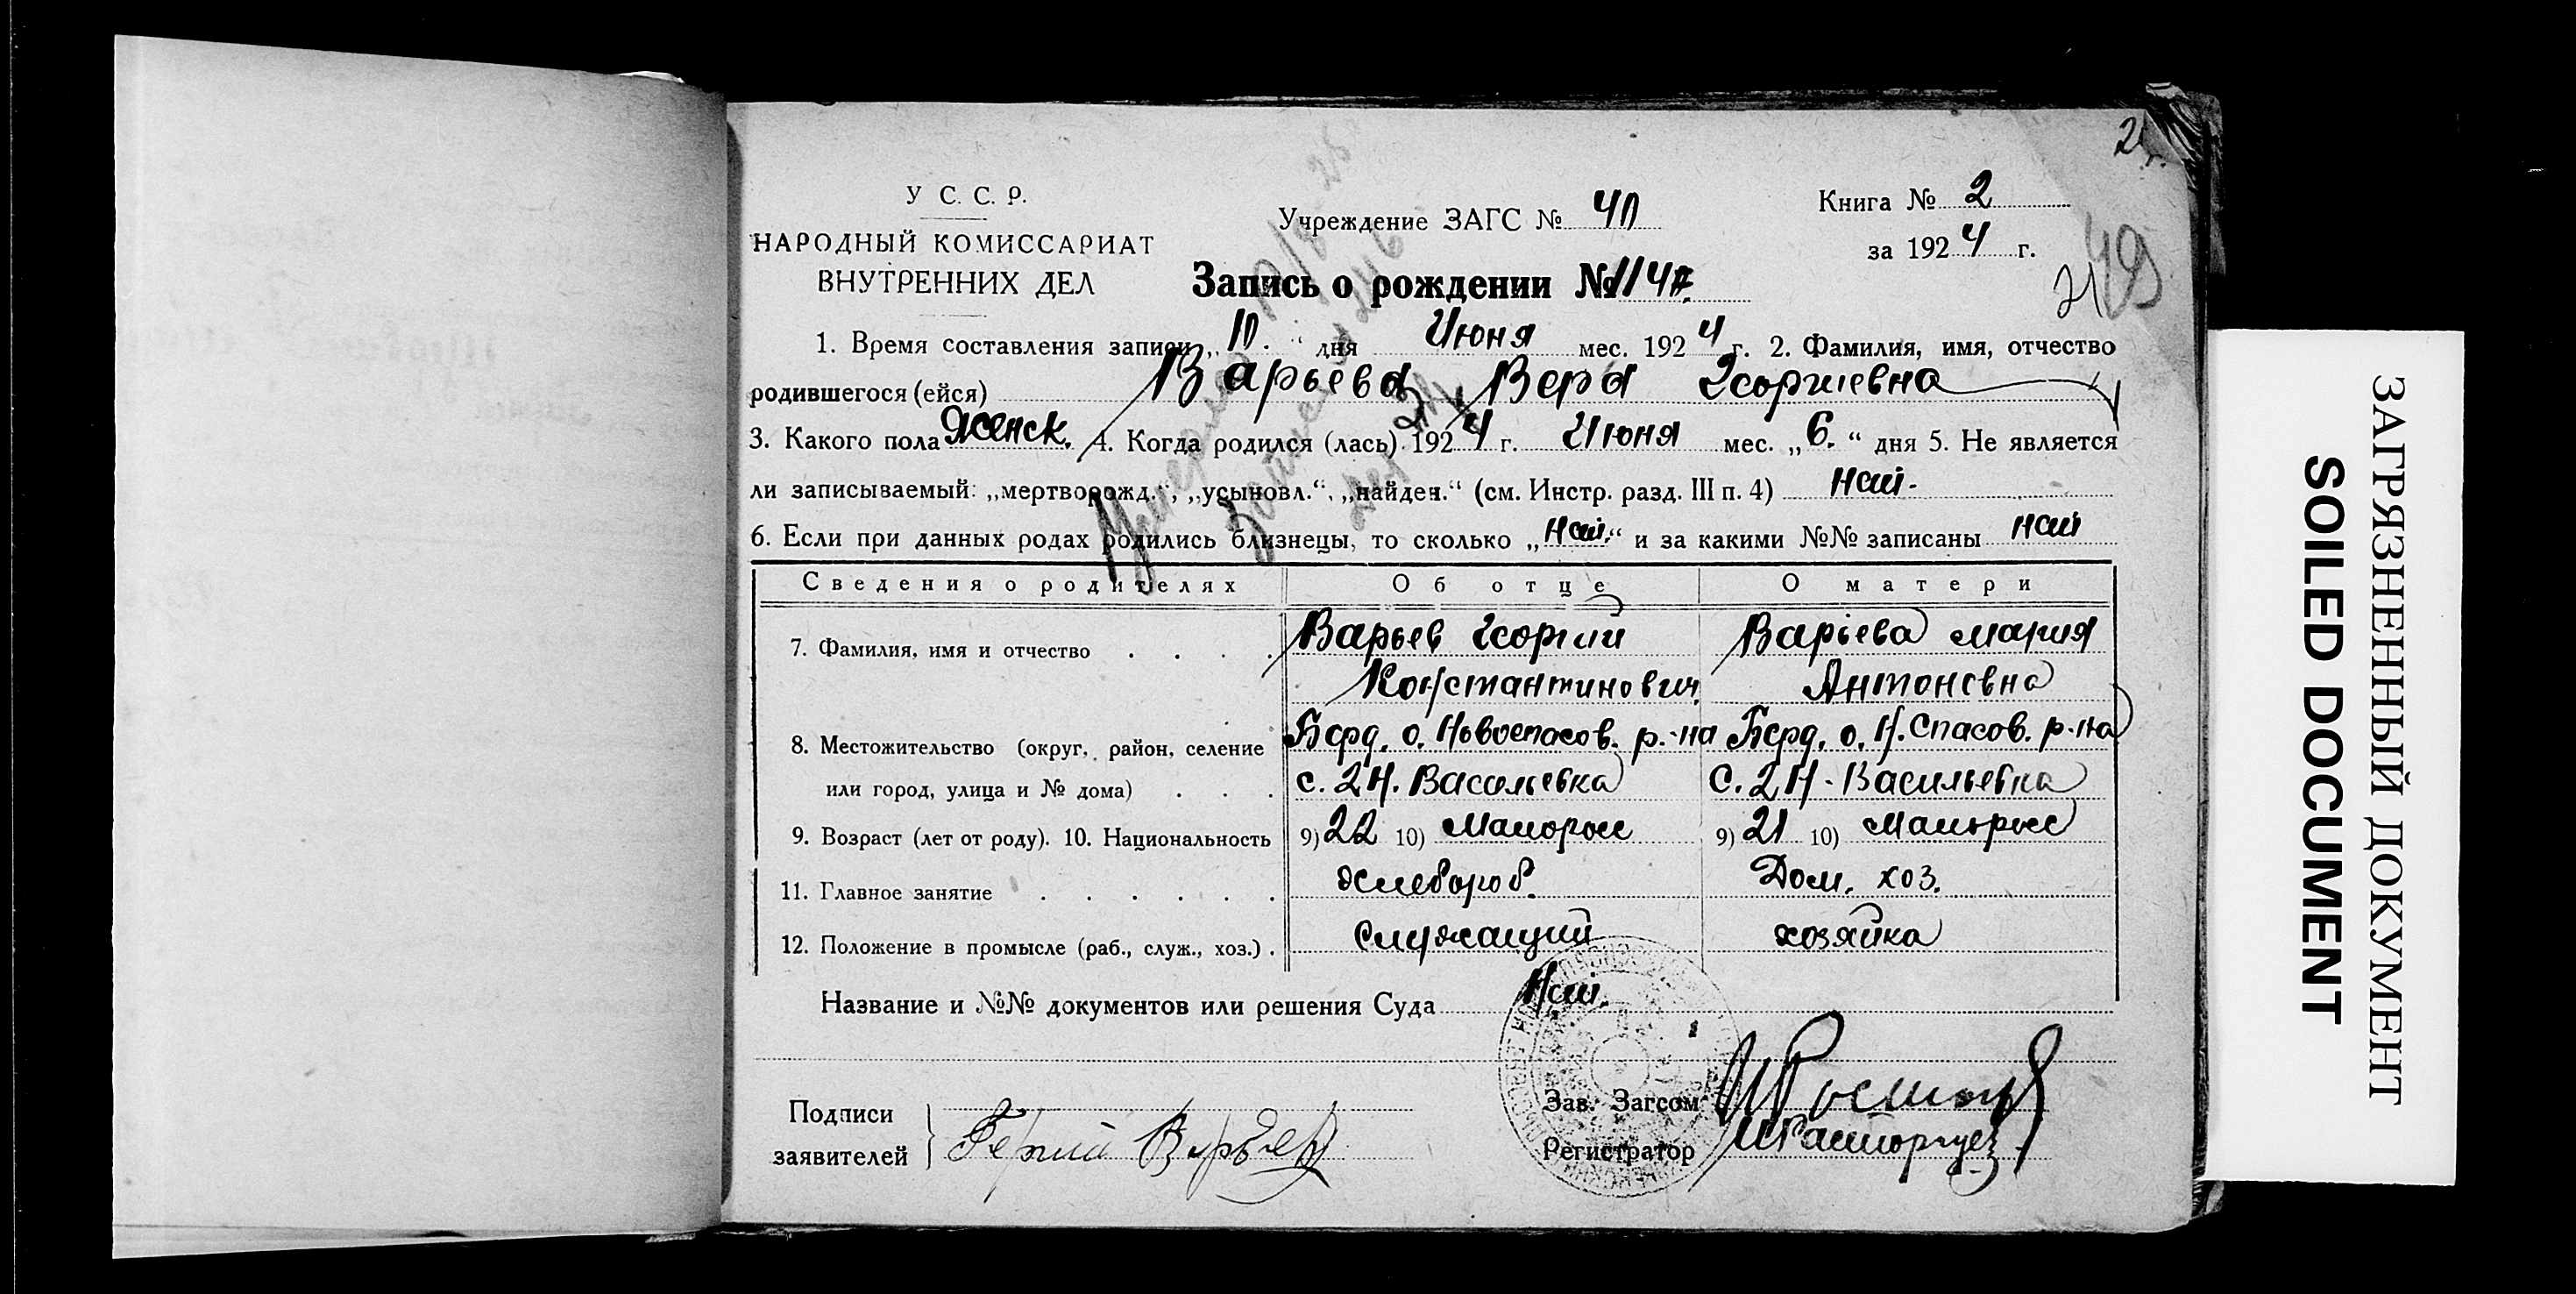 2
У С. С. Р.
НАРОДНЫЙ КОМИССАРИАТ
ВНУТРЕННИХ ДЕЛ
Учреждение ЗАГС № 40
Книга № 2
за 1924 г.
49
Запись о рождении № 114
1. Время составления записи „10.“ дня Июня мес. 1924 г. 2. Фамилия, имя, отчество
родившегося (ейся) Варьева Вера Георгиевна
3. Какого пола Женск. 4. Когда родился (лась) 1924 г. Июня мес. „6.“ дня 5. Не является
ли записываемый: „мертворожд.“, „усыновл.“, „найден.“ (см. Инстр. разд. III п. 4) нет.
6. Если при данных родах родились близнецы, то сколько „нет.“ и за какими №№ записаны нет
Сведения о родителях Об отце О матери
7. Фамилия, имя и отчество . . . . Варьев Георгий Варіева Мария
Константинович Антоновна
8. Местожительство (округ, район, селение Берд. о. Новоспасов. р.-на Берд. о. Н. Спасов. р-на
или город, улица и № дома) . . . с. 2 Н. Васильевка с. 2 Н-Васильевка
9. Возраст (лет от роду). 10. Национальность 9) 22 10) Малоросс 9) 21 10) Малоросс
11. Главное занятие . . . . . . хлебороб. Дом. хоз.
12. Положение в промысле (раб., служ., хоз.) . служащий хозяйка
Название и №№ документов или решения Суда Нет.
Подписи
заявителей
Варьев
Зав. Загсом
Регистратор
ЗАГРЯЗНЕННЫЙ ДОКУМЕНТ
SOILED DOCUMENT